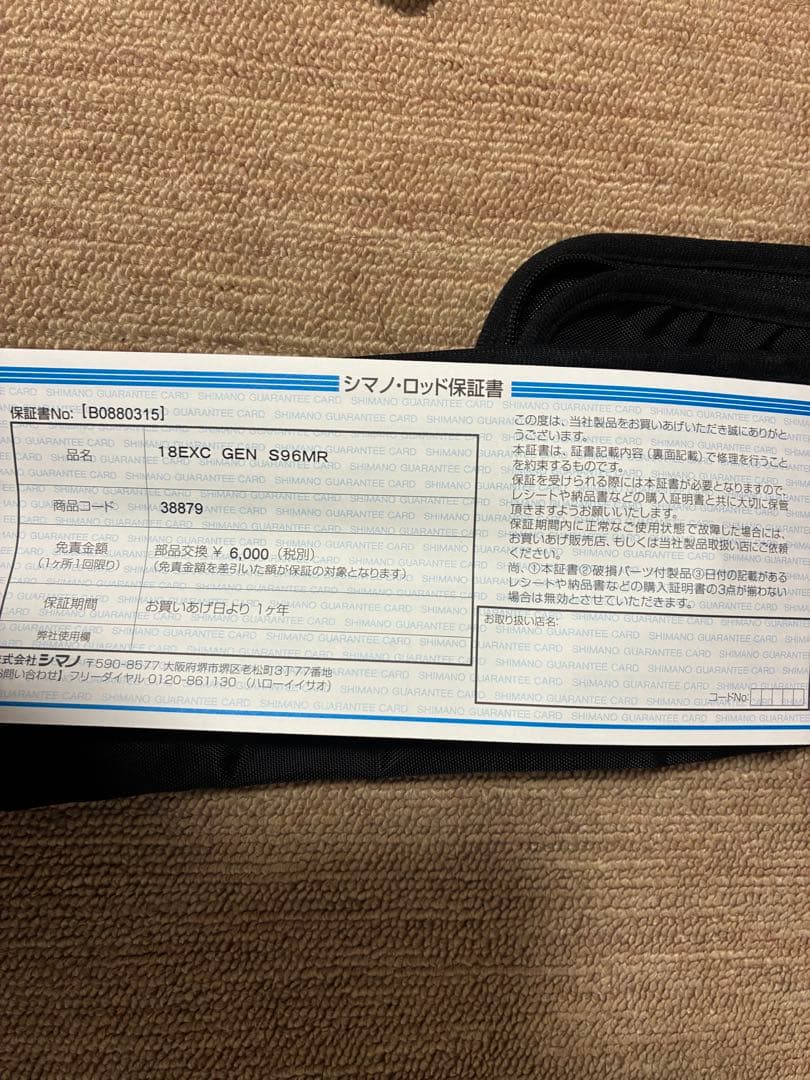 シマノ・ロッド保証書
保証書No: [B0880315]
品名 18EXC GEN S96MR
商品コード 38879
免責金額 部品交換 ¥ 6,000 (税別)
(1ヶ所1回限り) (免責金額を差引いた額が保証の対象となります)
保証期間 お買いあげ日より 1ヶ年
弊社使用欄
式会社シマノ 〒590-8577 大阪府堺市堺区老松町3丁77番地
問い合わせ】フリーダイヤル 0120-861130 (ハローイイサオ)
この度は、当社製品をお買いあげいただき誠にありがと
うございます。
本証書は、証書記載内容(裏面記載)で修理を行うこと
を約束するものです。
保証を受けられる際には本証書が必要となりますので、
レシートや納品書などの購入証明書と共に大切に保管
頂きますようお願いいたします。
保証期間内に正常なご使用状態で故障した場合には、
お買いあげ販売店、もしくは当社製品取扱い店にご依頼
ください。
尚、①本証書②破損パーツ付製品③日付の記載がある
レシートや納品書などの購入証明書の3点が揃わない
場合は無効とさせていただきます。
お取り扱い店名:
コードNo.
SHIMANO GUARANTEE CARD